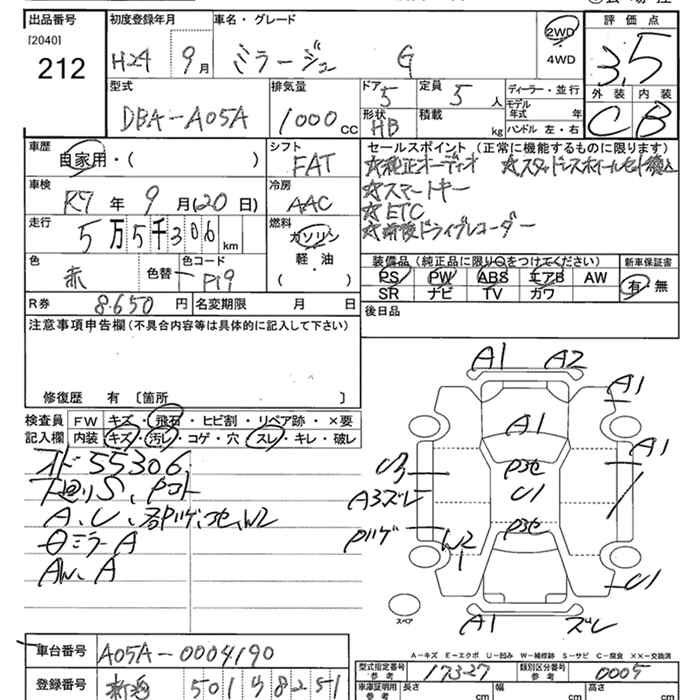 出品番号 初度登録年月 車名・グレード 評価点
[2040]
212 H24 9月 ミラージュ G 2WD 4WD 3.5
外装 内装
C B
型式 排気量 ドア 定員 ディーラー・並行
DBA-A05A 1000cc 5 5人
モデル年式 年
形状 積載
HB kg ハンドル 左・右
車歴 シフト セールスポイント(正常に機能するものに限ります)
自家用・( ) FAT ☆純正オーディオ ☆スタッドレスホイールセット積込
☆スマートキー
車検 冷房 ☆ETC
R7年 9月(20日) AAC ☆前後ドライブレコーダー
走行 燃料
5万5千306km ガソリン
軽油
( )
装備品(純正品に限り○をつけてください) 新車保証書
PS PW ABS エアB AW 有・無
SR ナビ TV カワ
色 色替 色コード
赤 P19
R券 8.650円 名変期限 月 日 後日品
注意事項申告欄(不具合内容等は具体的に記入して下さい)
修復歴 有 〔箇所 〕
検査員 FW キズ・飛石・ヒビ割・リペア跡・×要
記入欄 内装 キズ・汚レ・コゲ・穴・スレ・キレ・破レ
オド55306
下廻りS、
A、U、
ミラーA
A
A1 A2
A1
A1
A1
U1
A3ズレ
W2
U1
A1 ズレ
スペア
A-キズ E-エクボ U-凹み W-補修跡 S-サビ C-腐食 ××-交換済
車台番号 A05A-0004190
型式指定番号 参考 17327 類別区分番号 参考 0005
登録番号 新潟 501 8251
車庫証明用 参考 長さ cm 幅 cm 高さ cm